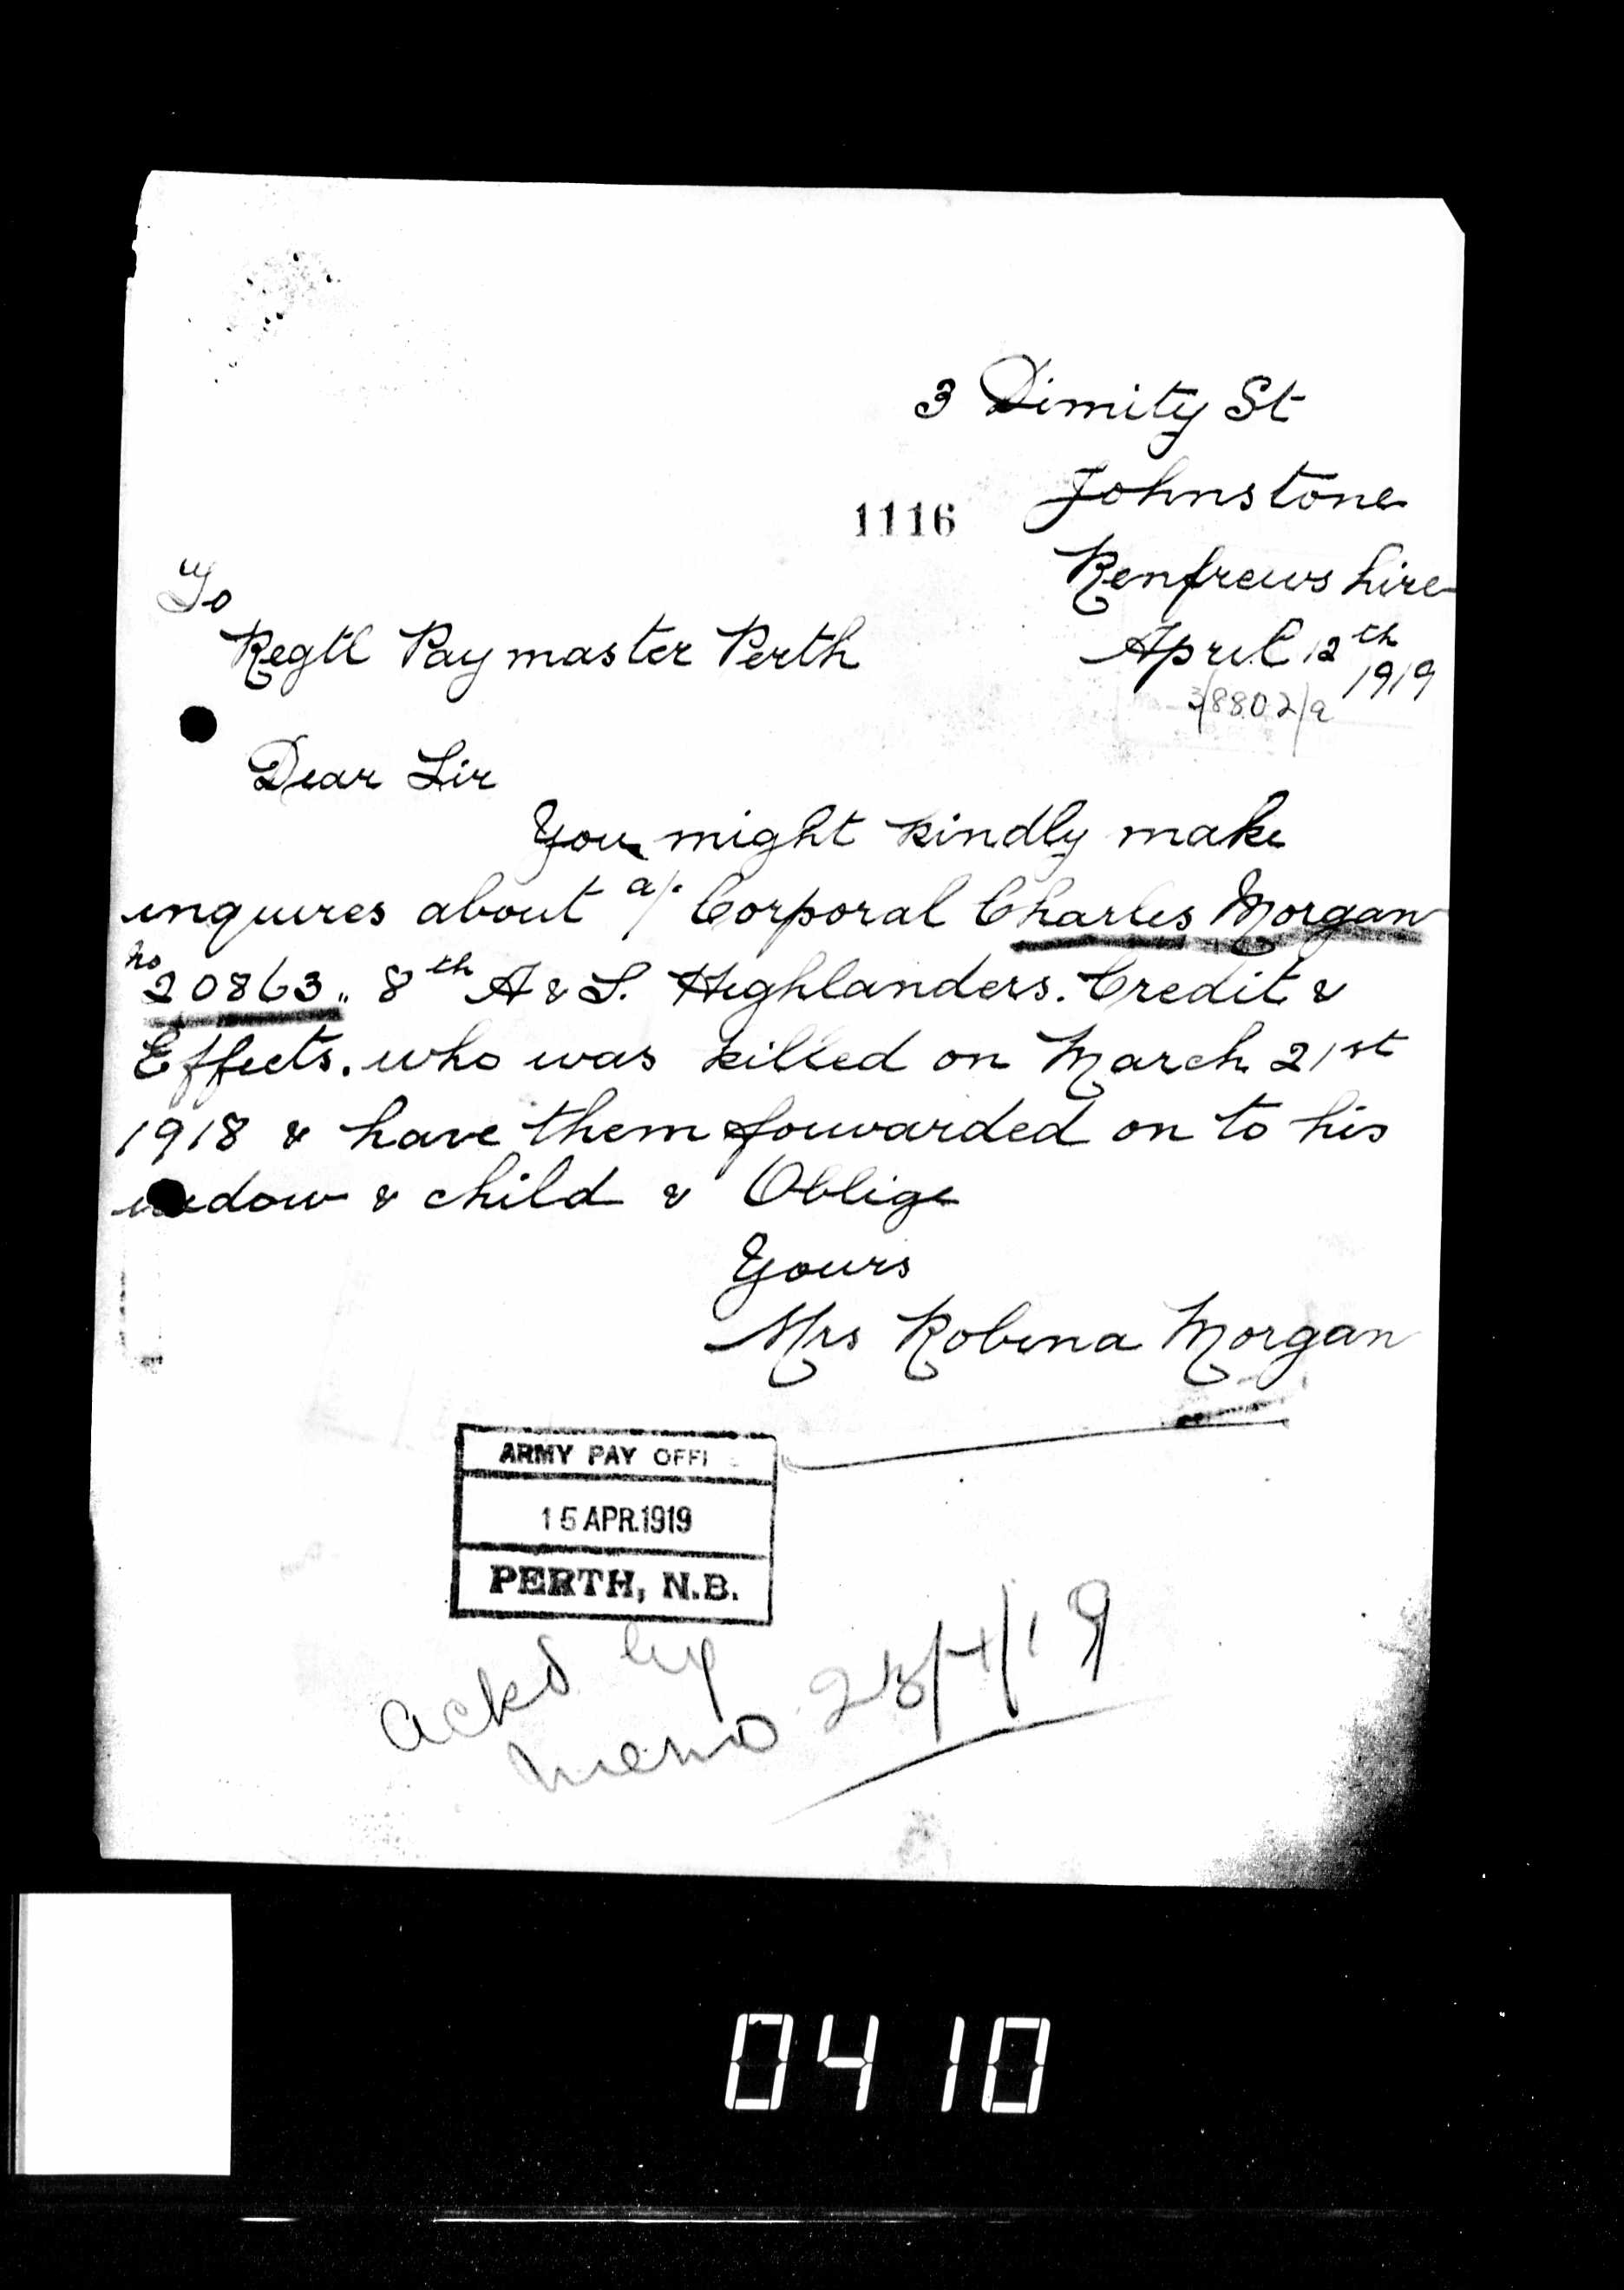 3 Dimity St
Johnstone
1116
Renfrewshire
To
Regtl Paymaster Perth
April 12th
1919
3/8802/a
Dear Sir
You might kindly make
enquires about a/. Corporal Charles Morgan
no 20863 „ 8th A & S. Highlanders. Credit &
Effects. who was killed on March 21st
1918 & have them forwarded on to his
widow & child & Oblige
Yours
Mrs Robina Morgan
ARMY PAY OFFI
15 APR.1919
PERTH, N.B.
ackd by
memo 28/4/19
0410